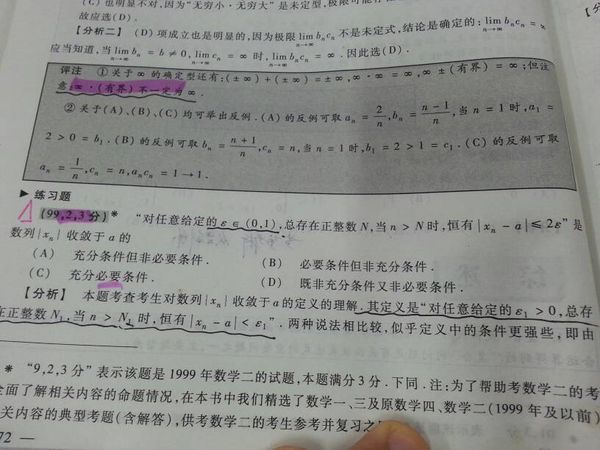 (C)也明显不对,因为"无穷小·无穷大"是未定型,极限可能
故应选(D).
【分析二】 (D)项成立也是明显的,因为极限 lim n→∞ bₙcₙ 不是未定式,结论是确定的: lim n→∞ bₙcₙ =
应当知道,当 lim n→∞ bₙ = b ≠ 0, lim n→∞ cₙ = ∞ 时, lim n→∞ bₙcₙ = ∞. 因此选(D).
评注 ①关于 ∞ 的确定型还有: (±∞) + (±∞) = ±∞, ∞·∞ = ∞, ∞ ± (有界) = ∞; 但注
意: ∞·(有界)不一定为 ∞.
②关于(A)、(B)、(C)均可举出反例. (A)的反例可取 aₙ = 2/n, bₙ = (n-1)/n, 当 n = 1 时, a₁ =
2 > 0 = b₁. (B)的反例可取 bₙ = (n+1)/n, cₙ = n, 当 n = 1 时, b₁ = 2 > 1 = c₁. (C)的反例可取
aₙ = 1/n, cₙ = n, aₙcₙ = 1 → 1.
▶ 练习题
(99,2,3分)* "对任意给定的 ε ∈ (0,1), 总存在正整数 N, 当 n > N 时, 恒有 |xₙ - a| ≤ 2ε" 是
数列{xₙ}收敛于 a 的
(A) 充分条件但非必要条件. (B) 必要条件但非充分条件.
(C) 充分必要条件. (D) 既非充分条件又非必要条件.
【分析】 本题考查考生对数列{xₙ}收敛于 a 的定义的理解. 其定义是"对任意给定的 ε₁ > 0, 总存
在正整数 N₁, 当 n > N₁ 时, 恒有 |xₙ - a| < ε₁". 两种说法相比较, 似乎定义中的条件更强些, 即由
* "9,2,3分"表示该题是1999年数学二的试题,本题满分3分. 下同. 注:为了帮助考数学二的考
全面了解相关内容的命题情况,在本书中我们精选了数学一、三及原数学四、数学二(1999年及以前)
关内容的典型考题(含解答),供考数学二的考生参考并复习之
72 —